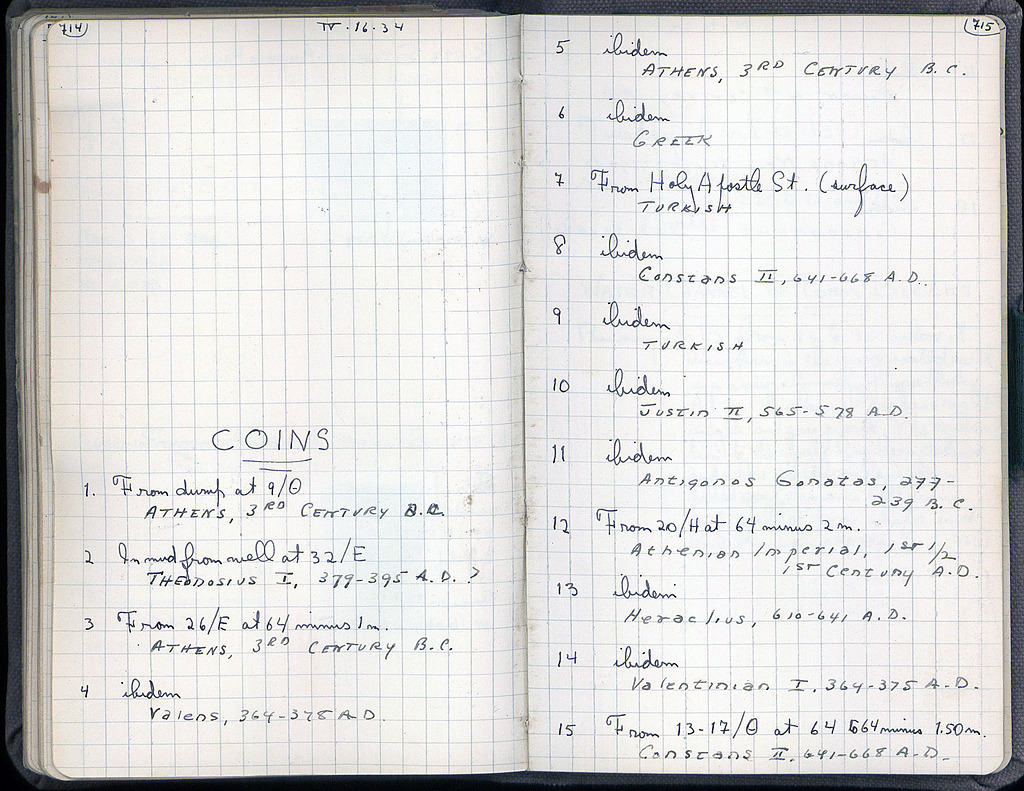 714
IV·16·34
COINS
1. From dump at 9/Θ
ATHENS, 3RD CENTURY B.C.
2 In mud from well at 32/E
THEODOSIUS I, 379-395 A.D. ?
3 From 26/E at 64 minus 1m.
ATHENS, 3RD CENTURY B.C.
4 ibidem
Valens, 364-378 A.D.
715
5 ibidem
ATHENS, 3RD CENTURY B.C.
6 ibidem
GREEK
7 From Holy Apostle St. (surface)
TURKISH
8 ibidem
Constans II, 641-668 A.D.
9 ibidem
TURKISH
10 ibidem
Justin II, 565-578 A.D.
11 ibidem
Antigonos Gonatas, 277-
239 B.C.
12 From 20/H at 64 minus 2m.
Athenian Imperial, 1st 1/2
1st Century A.D.
13 ibidem
Heraclius, 610-641 A.D.
14 ibidem
Valentinian I, 364-375 A.D.
15 From 13-17/Θ at 64 to 64 minus 1.50m.
Constans II, 641-668 A.D.